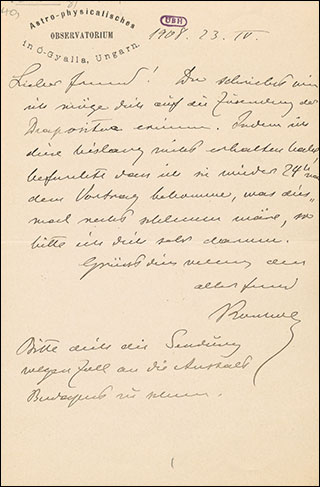 Astro-physicalisches
OBSERVATORIUM
in Ó-Gyalla, Ungarn.
UBH
1908. 23. IV.
Lieber Freund! Du schriebst mir
ich möge dich auf die Zusendung der
Diapositive erinnern. Indem ich
diese bislang nicht erhalten habe
befürchte dass ich sie wieder 24h nach
dem Vortrag bekomme, was dies-
mal recht schlimm wäre, so
bitte ich dich sehr darum.
Grüsst dich vielmals dein
alter Freund
Bitte dich die Sendung
wegen Zoll an die Anstalt
Budapest zu